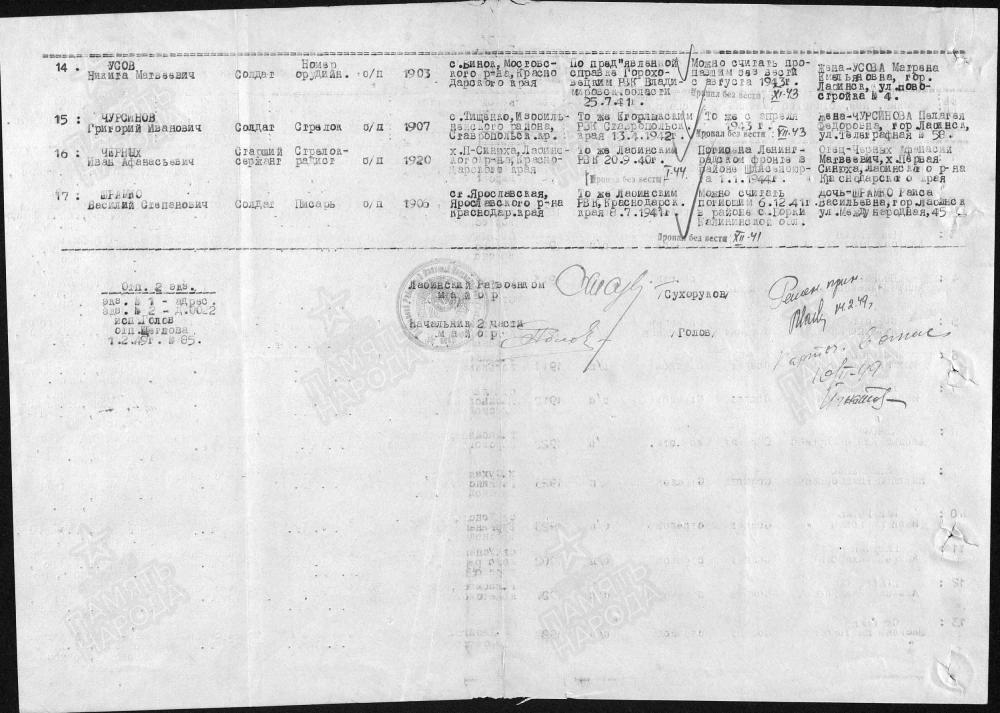 14 : УСОВ Никита Матвеевич Солдат Номер орудийн. б/п 1903
с.Бинок, Мостовс-
кого р-на, Красно
дарского края
По пред"явленной
справке Горохо-
вецким РВК Влади-
мировск.области
25.7.41г.
Можно считать про-
павшим без вести
с августа 1943г.
Пропал без вести XII-43
Жена-УСОВА Матрена
Емельяновна, гор.
Лабинск, ул.ново-
стройка № 4.
15 : ЧУРСИНОВ Григорий Иванович Солдат Стрелок б/п 1907
с.Тищенко, Изобиль-
ненского района,
Ставропольск.кр.
То же Егорлыкским
РВК Ставропольск.
края 13.4.1942г.
То же с апреля
1943 г.
Пропал без вести VII-43
Жена-ЧУРСИНОВА Пелагея
Федоровна, гор.Лабинск,
ул.Телеграфная № 58.
16 : ЧЕРНЫХ Иван Афанасьевич Старший сержант Стрелок-радист б/п 1920
х.П-Синюха, Лабинс-
кого р-на, Красно-
дарского края
То же Лабинским
РВК 20.9.40г.
Пропал без вести I-44
Погиб на Ленинг-
радском фронте в
районе
1.1.1944г.
Отец-Черных Афанасий
Матвеевич, х.Первая
Синюха, Лабинского р-на
Краснодарского края
17 : ШРАМКО Василий Степанович Солдат Писарь б/п 1906
ст.Ярославская,
Ярославского р-на
Краснодар.край
То же Лабинским
РВК, Краснодарск.
края 8.7.1941г.
Можно считать
погибшим 6.12.41г
в районе с.Горки
Калининской обл.
Пропал без вести XII-41
Дочь-ШРАМКО Раиса
Васильевна, гор.Лабинск
ул.Международная, 45
Отп. 2 экз.
экз. № 1 - адрес.
экз. № 2 - д.0022
исп.Голов
отп.Щеглова
1.2.49г. № 85.
Лабинский Райвоенком
майор
/Сухоруков/
Начальник 2 части
майор
/Голов/
14.2.49г.
10/II-49
ПАМЯТЬ НАРОДА
ПАМЯТЬ НАРОДА
ПАМЯТЬ НАРОДА
ПАМЯТЬ НАРОДА